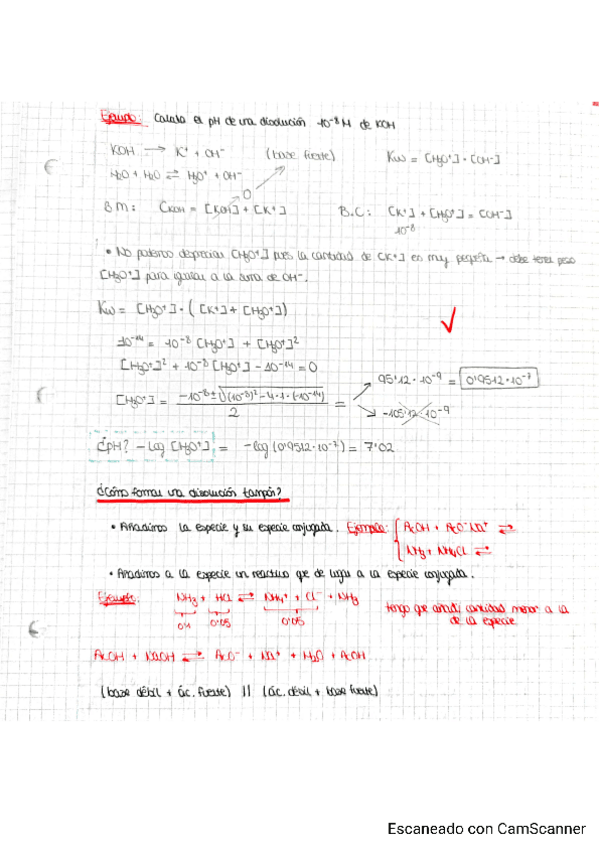 Ejemplo: Calcula el pH de una disolución 10⁻⁸ M de KOH
KOH → K⁺ + OH⁻ (base fuerte) Kw = [H₃O⁺]·[OH⁻]
H₂O + H₂O ⇌ H₃O⁺ + OH⁻
0
B.M: CKOH = [KOH] + [K⁺] B.C: [K⁺] + [H₃O⁺] = [OH⁻]
10⁻⁸
• No podemos despreciar [H₃O⁺] pues la cantidad de [K⁺] es muy pequeña → debe tener peso
[H₃O⁺] para igualar a la suma de OH⁻.
Kw = [H₃O⁺]·([K⁺] + [H₃O⁺])
10⁻¹⁴ = 10⁻⁸ [H₃O⁺] + [H₃O⁺]²
[H₃O⁺]² + 10⁻⁸ [H₃O⁺] - 10⁻¹⁴ = 0
95'12·10⁻⁹ = 0'9512·10⁻⁷
[H₃O⁺] = (-10⁻⁸ ± √((10⁻⁸)² - 4·1·(-10⁻¹⁴))) / 2 =
-105'12·10⁻⁹
¿pH? - log [H₃O⁺] = -log (0'9512·10⁻⁷) = 7'02
¿Cómo formar una disolución tampón?
• Añadimos la especie y su especie conjugada. Ejemplo: AcOH + AcO⁻Na⁺ ⇌
NH₃ + NH₄Cl ⇌
• Añadimos a la especie un reactivo que de lugar a la especie conjugada.
Ejemplo: NH₃ + HCl ⇌ NH₄⁺ + Cl⁻ + NH₃
0'1 0'05 0'05
tengo que añadir cantidad menor a la
de la especie
AcOH + NaOH ⇌ AcO⁻ + Na⁺ + H₂O + AcOH
(base débil + ác. fuerte) || (ác. débil + base fuerte)
Escaneado con CamScanner